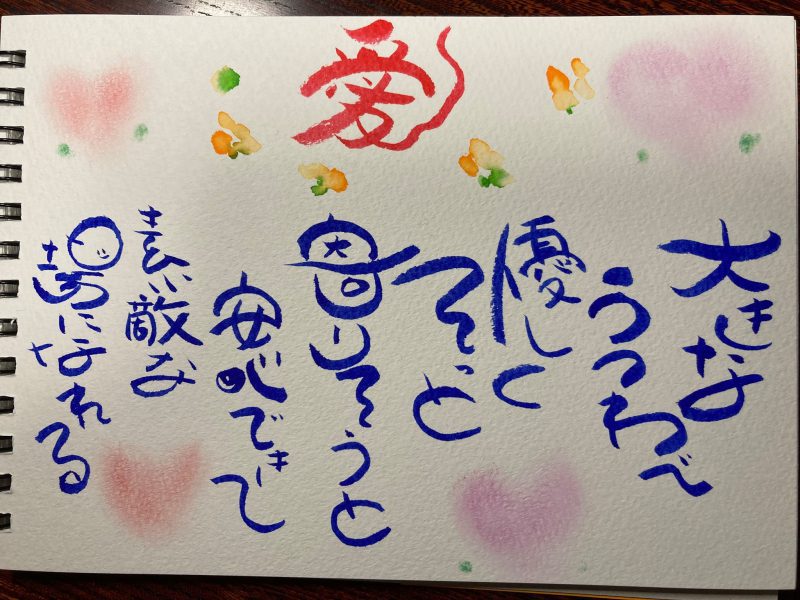 愛
大きな
うつわで
優しく
そっと
寄りそうと
安心できて
素敵な
場になれる